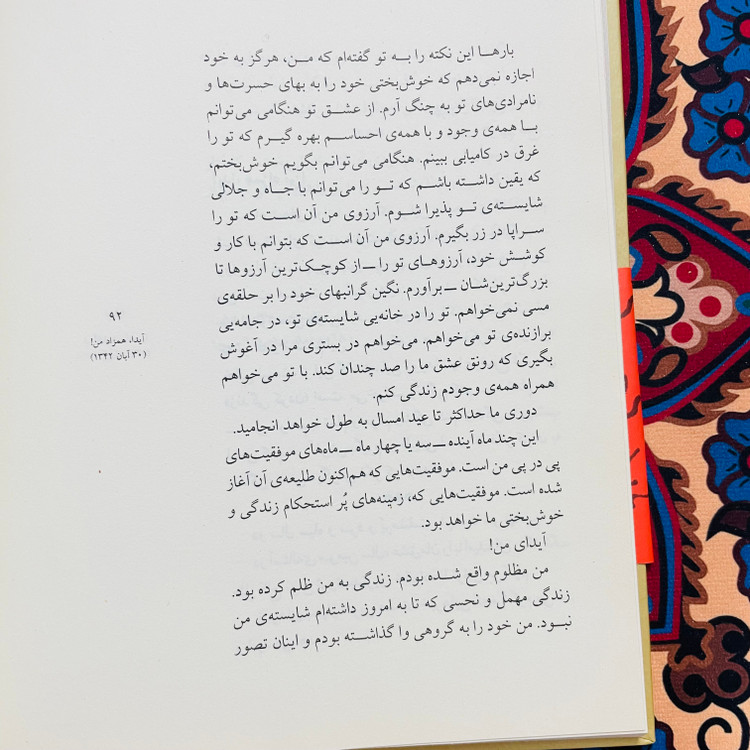 بارهـا این نکته را بـه تو گفته‌ام که من، هرگز به خود
اجازه نمی‌دهم که خوش‌بختی خود را به بهای حسرت‌ها و
نامرادی‌های تو به چنگ آرم. از عشـق تو هنگامی می‌توانم
بـا همه‌ی وجود و با همه‌ی احساسـم بهره گیـرم که تو را
غرق در کامیابی ببینم. هنگامی می‌توانم بگویم خوش‌بختم،
که یقین داشـته باشـم که تو را می‌توانم با جـاه و جـلالی
شایسـته‌ی تـو پذیرا شـوم. آرزوی من آن است که تو را
سـراپا در زر بگیرم. آرزوی من آن است که بتوانم با کار و
کوشش خود، آرزوهای تو را ــ از کوچک‌ترین آرزوها تا
بزرگ‌ترین‌شان ــ برآورم. نگین گرانبهای خود را بر حلقه‌ی
مسی نمی‌خواهم. تو را در خانه‌یی شایسته‌ی تو، در جامه‌یی
برازنده‌ی تو می‌خواهم. می‌خواهم در بستری مرا در آغوش
بگیری که رونق عشق ما را صد چندان کند. با تو می‌خواهم
همراه همه‌ی وجودم زندگی کنم.
دوری ما حداکثر تا عید امسال به طول خواهد انجامید.
این چند ماه آینده ــ سه یا چهار ماه ــ ماه‌های موفقیت‌های
پی در پی من است. موفقیت‌هایی که هم‌اکنون طلیعه‌ی آن آغاز
شده است. موفقیت‌هایی که، زمینه‌های پُر استحکام زندگی و
خوش‌بختی ما خواهد بود.
آیدای من!
من مظلوم واقع شده بودم. زندگی به من ظلم کرده بود.
زندگی مهمل و نحسی که تا به امروز داشته‌ام شایسته‌ی من
نبـود. من خود را به گروهی وا گذاشـته بودم و اینان تصور
۹۲
آیدا، همزاد من!
(۳۰ آبان ۱۳۴۲)